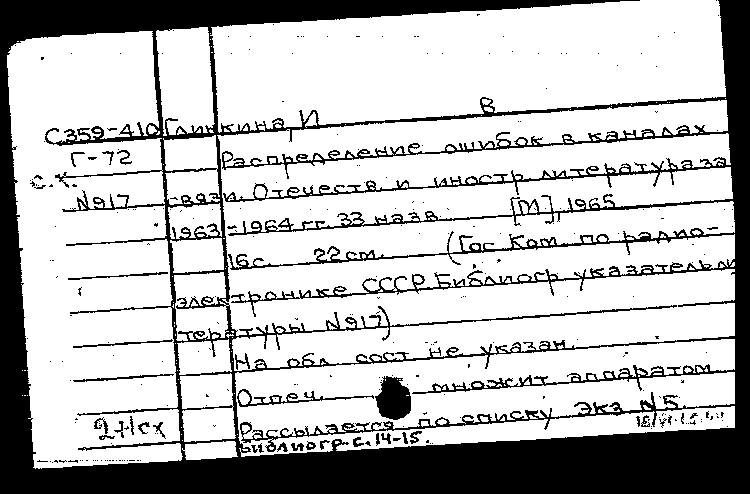 В
С359-410 Глинкина, И
Г-72 Распределение ошибок в каналах
с.х.
N917 связи. Отечеств. и иностр литература за
1963-1964 гг. 33 назв. [М], 1965
16с. 22см. (Гос Ком. по радио-
электронике СССР. Библиогр указатель ли
тературы N917).
На обл сост не указан.
Отпеч. множит. аппаратом
2+1сх Рассылается по списку Экз N5.
Библиогр. с. 14-15.